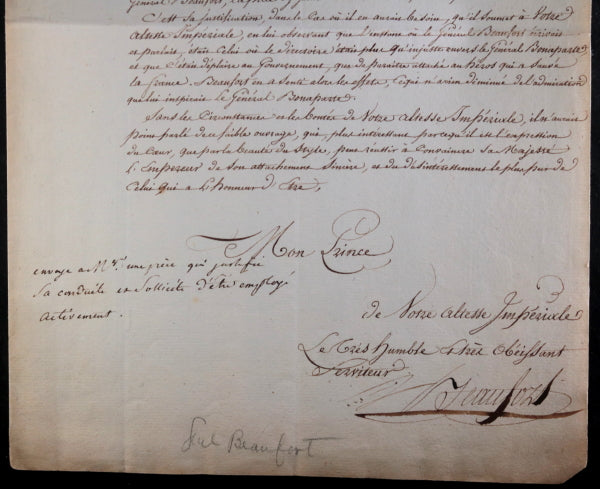 Général Beaufort,
C'est sa justification, dans le Cas où il en aurait besoin, qu'il soumet à Votre
altesse Impériale, en lui observant que l'instant où le Général Beaufort Ecrivoit
et parlait, était Celui où le directoire était plus qu'injuste envers le Général Bonaparte
et que C'était déplaire au Gouvernement, que de paraitre attaché au héros qui a Sauvé
la france. Beaufort en a Senti alors les effets, Ce qui n'a rien diminué de l'admiration
que lui inspirait le Général Bonaparte.
Sans les Circonstances et les bontés de Votre altesse Impériale, il n'aurait
point parlé de ce faible ouvrage, qui, plus intéressant parcequ'il est l'expression
du Cœur, que par la beauté du Style, peut réussir à Convaincre Sa Majesté
L'Empereur de Son attachement Sincère, et du désintéressement le plus pur de
Celui qui a L'honneur d'Etre,
Mon Prince
envoye a Mr une pièce qui justifie
Sa conduite et Sollicite d'être employé
activement.
de Votre altesse Impériale
Le très humble et très obéissant
Serviteur
Beaufort
Gal Beaufort